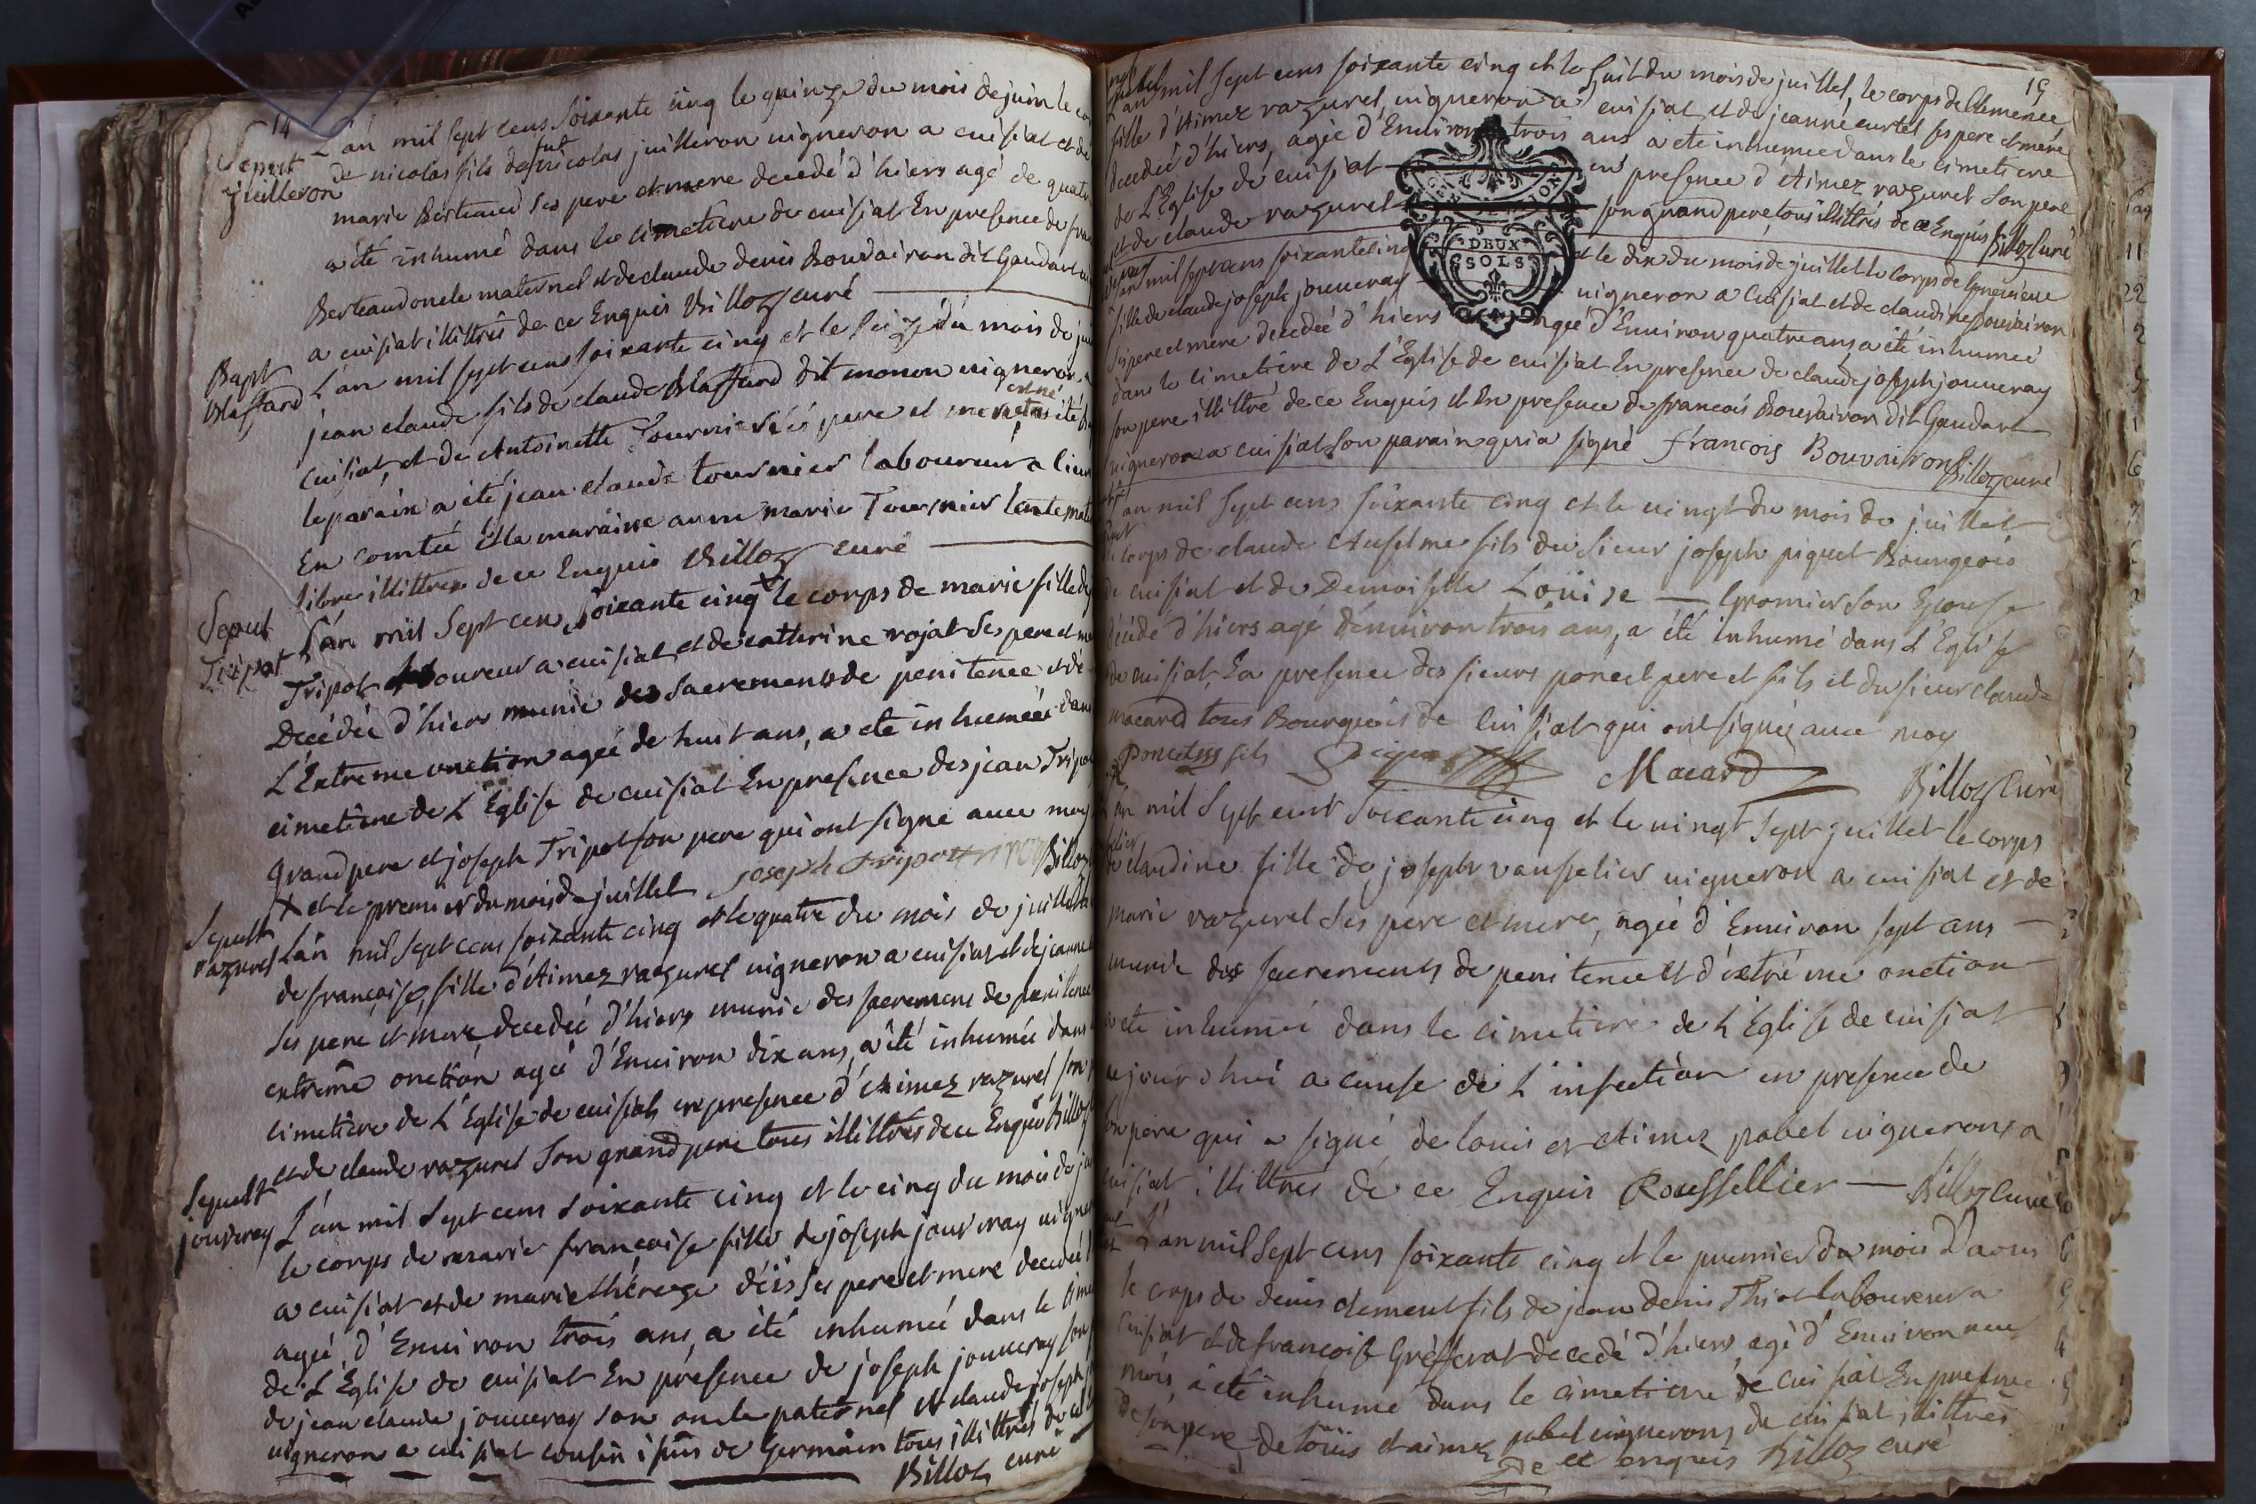 14
Sepult
juilleron
L'an mil sept cens soixante cinq le quinze du mois de juin le co
de nicolas fils de fut nicolas juilleron vigneron a cuisiat et de
marie Berteaud ses pere et mere decedé d'hiers agé de quatr
a été inhumé dans le cimetiere de cuisiat En presence de fra
Berteaud oncle maternel et de claude denis Bouvairon dit Gaudart
a cuisiat illittrés de ce Enquis Billoz curé
Bapt
Blassard
L'an mil sept cens soixante cinq et le seize du mois de ju
jean claude fils de claude Blassard dit monon vigneron a
cuisiat, et de Antoinette Tournier ses pere et mere est né et a été
le parain a été jean claude tournier laboureur a
En comtée et la maraine anne marie Tournier tante mate
illittrés de ce Enquis Billoz curé
Sepult
Tripot
L'an mil sept cen soixante cinq x le corps de marie fille de
Tripot laboureur a cuisiat et de catherine rojat ses pere et m
Decedée d'hiers munie des sacrements de penitence et de
L'Extreme onction agée de huit ans, a eté inhumée dans
cimetiere de L'Eglise de cuisiat En presence des jean Tripot
grand pere et joseph Tripot son pere qui ont signé avec moy
x et le premier du mois de juillet joseph tripot Billoz
Sepult
razurel
L'an mil sept cens soixante cinq et le quatre du mois de juillet
de francoise, fille d'Aimez razurel vigneron a cuisiat et de jeanne
ses pere et mere decedée d'hiers munie des sacremens de penitence
extreme onction agée d'Environ dix ans, a été inhumée dans
cimetiere de L'Eglise de cuisiat, en presence d'Aimez razurel son
et de claude razurel son grand pere tous illittrés de ce Enquis Billoz
Sepult
jouvray
L'an mil sept cens soixante cinq et le cinq du mois de ju
le corps de marie francoise fille de joseph jouvray vigner
a cuisiat et de marie thereze déis ses pere et mere decedée
agée d'Environ trois ans, a été inhumée dans le cime
de L'Eglise de cuisiat En présence de joseph jouveray son
de jean claude jouveray son oncle paternel et claude joseph
vigneron a cuisiat cousin issus de Germain tous illittrés de ce
Billoz curé
15
L'an mil sept cens soixante cinq et le huit du mois de juillet, le corps de Clemence
fille d'Aimez razurel, vigneron a cuisiat et de jeanne curtel ses pere et mére
decedée d'hiers, agée d'Environ trois ans a eté inhumée dans le cimetiere
de L'Eglise de cuisiat en presence d'Aimez razurel son pere
et de claude razurel son grand pere, tous illittrés de ce Enquis Billoz Curé
DEUX
SOLS
L'an mil sept cens soixante cinq et le dix du mois de juillet le corps de
fille de claude joseph jouveray vigneron a Cuisiat et de claudine Bouvairon
ses pere et mere decedée d'hiers agée d'Environ quatre ans a été inhumée
dans le cimetiere de L'Eglise de cuisiat En presence de claude joseph jouveray
son pere illittré de ce Enquis et En presence de francois Bouvairon dit Gaudart
vigneron a cuisiat son parain qui a signé francois Bouvairon Billoz curé
L'an mil sept cens soixante cinq et le vingt du mois de juillet
le corps de claude Anselme fils du sieur joseph piquet Bourgeois
de cuisiat et de Demoiselle Loüise — Gromier son Epouse
décédé d'hiers agé d'environ trois ans, a été inhumé dans L'Eglise
de cuisiat, En presence des sieurs poncet pere et fils et du sieur claude
macard tous Bourgeois de Cuisiat qui ont signés avec moy
Poncet fils Macard Billoz Curé
L'an mil sept cent soixante cinq et le vingt sept juillet le corps
de claudine fille de joseph vausselier vigneron a cuisiat et de
marie razurel ses pére et mere, agée d'Environ sept ans —
munie des sacrements de penitence et d'extréme onction
a eté inhumée dans le cimetiere de L'Eglise de cuisiat
aujourdhui a cause de L'infection en presence de
son pere qui a signé, de louis et Aimez pobel vignerons a
cuisiat illittrés de ce Enquis Roussellier — Billoz Curé
L'an mil sept cens soixante cinq et le premier du mois d'aous
le corps de denis clement fils de jean denis Thiot laboureur a
Cuisiat et de francoise Grefferat decedé d'hiers agé d'Environ neuf
mois, a été inhumé dans le cimetiere de cuisiat En presence
de son pere, de loüis et aimez pobel vignerons de cuisiat illittrés
de ce enquis Billoz curé